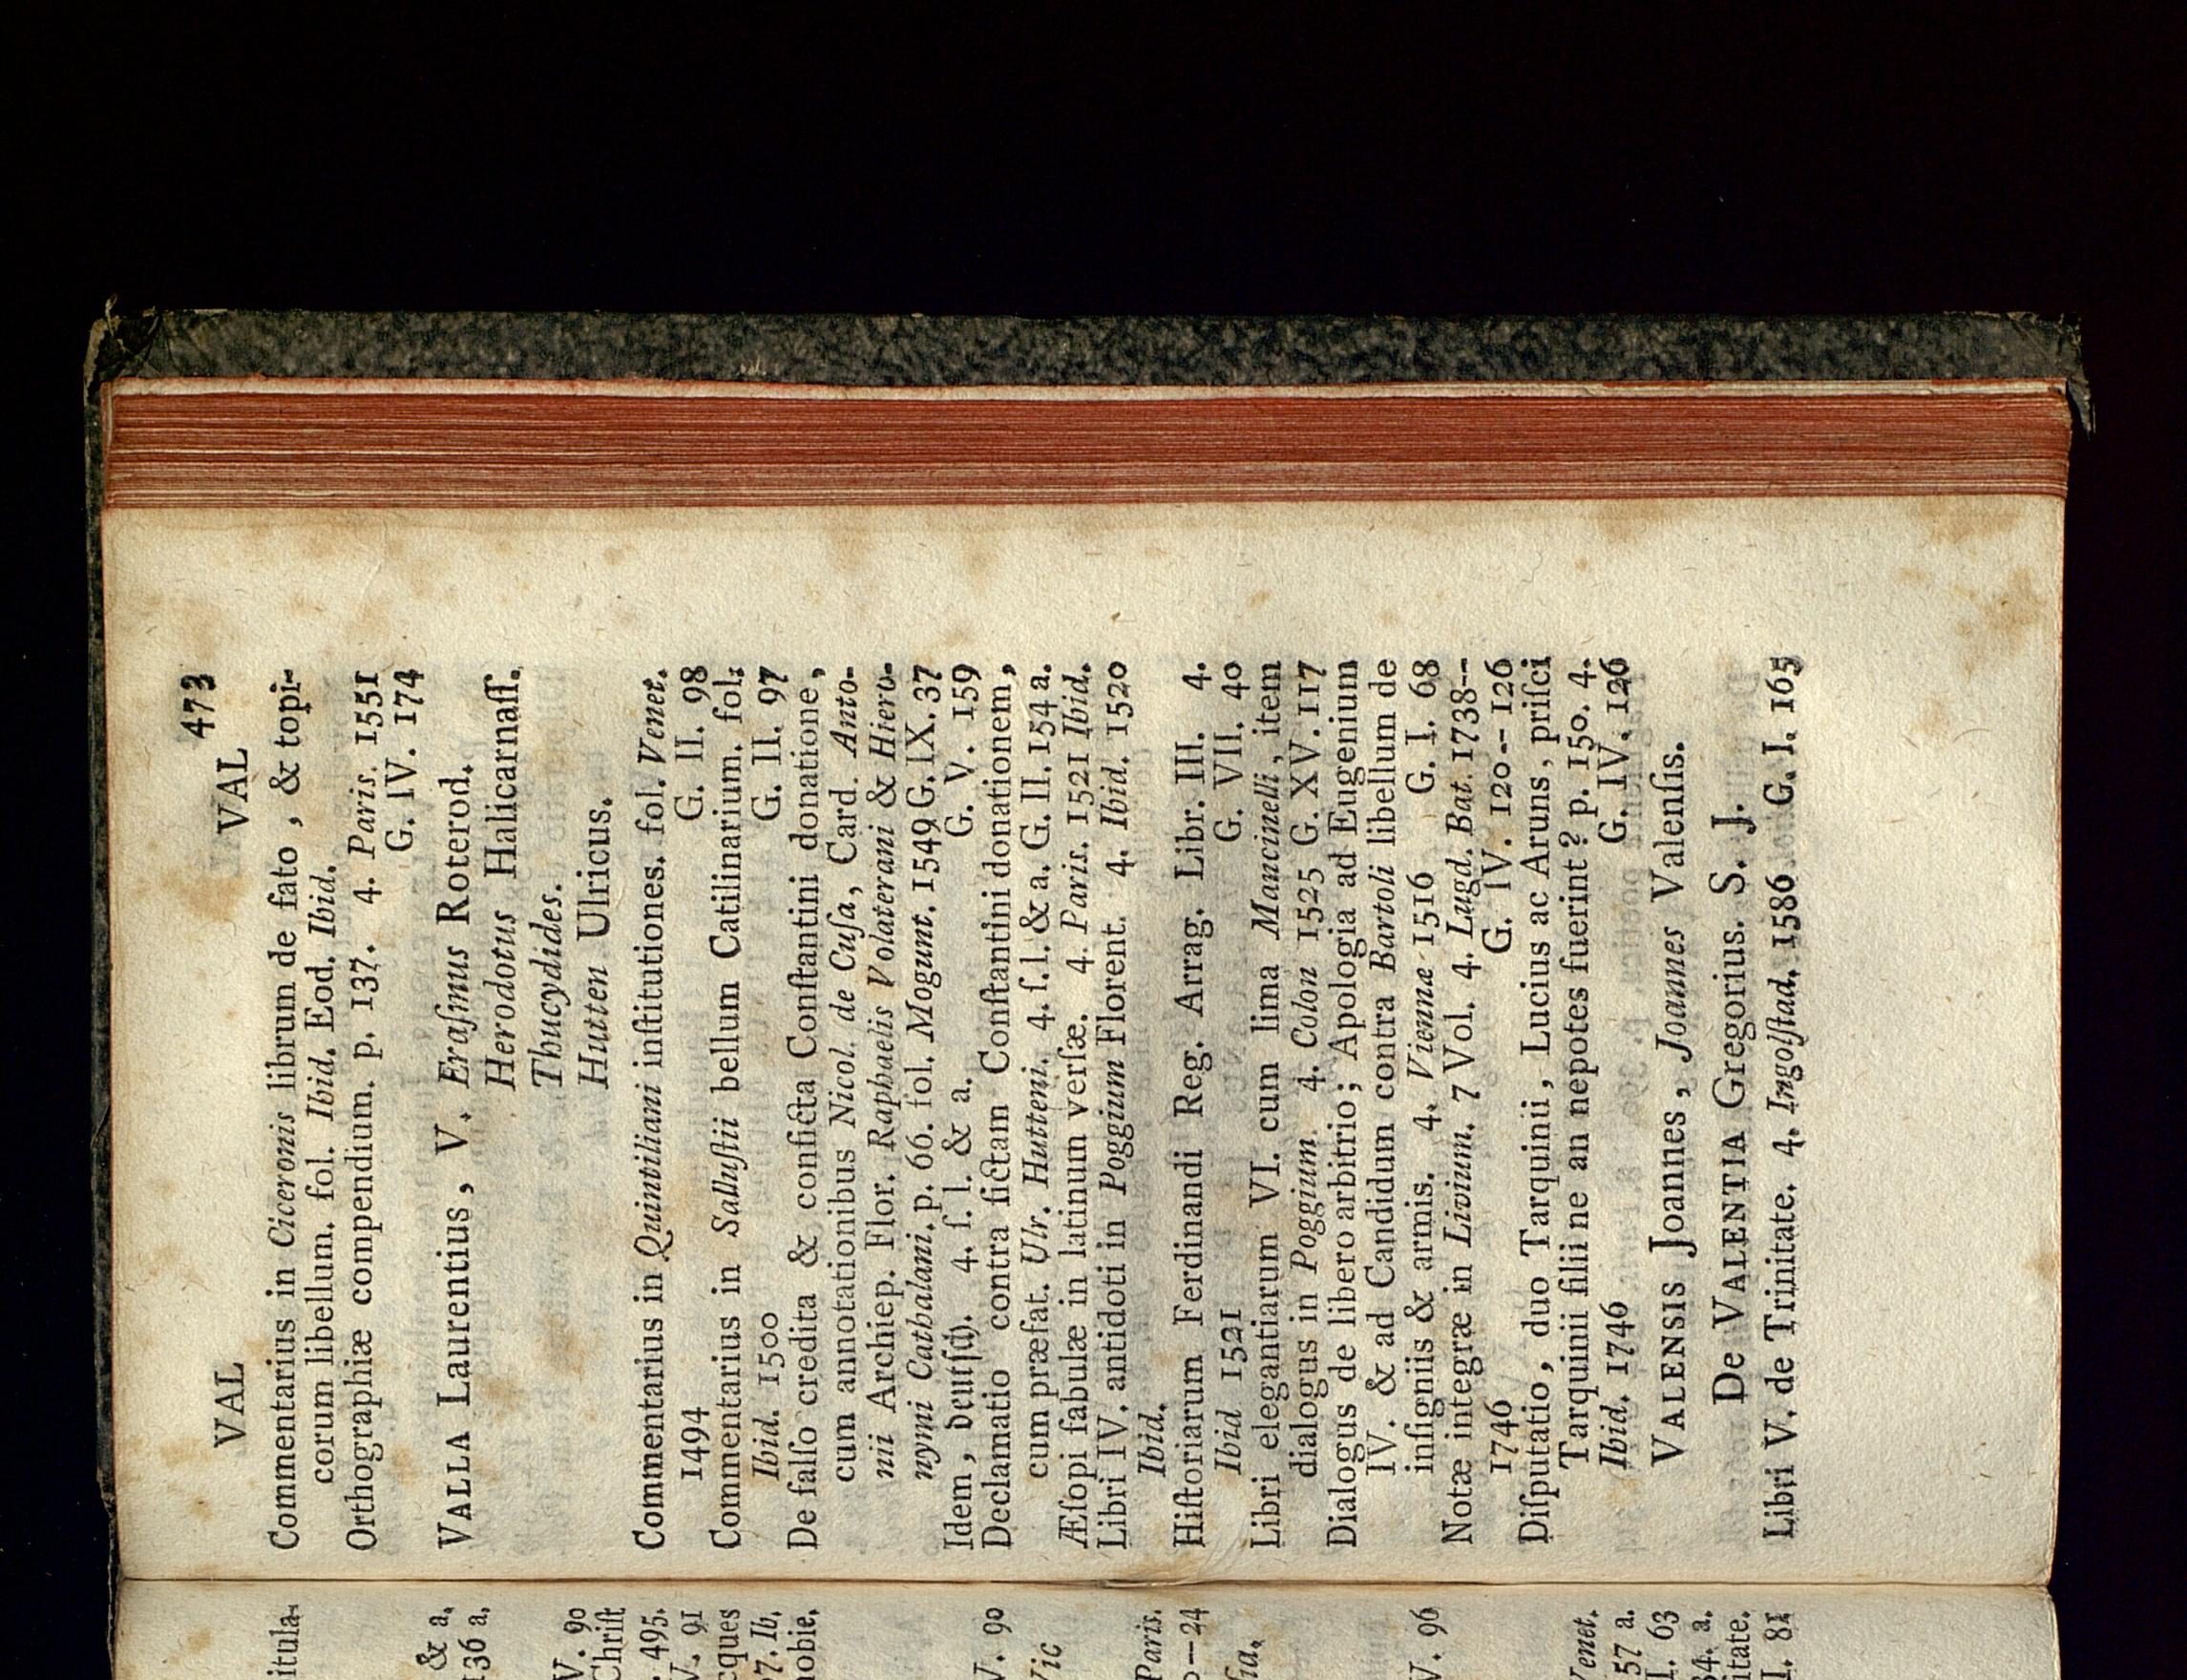 itula-
& a.
136 a.
V. 90
Chriſt
495.
V. 91
cques
7. Ib.
nobie.
V. 90
Vic
Paris.
0--24
ſia.
V. 96
Venet.
57 a.
I. 63
34. a.
itate.
I. 81
VAL VAL 473
Commentarius in Ciceronis librum de fato , & topi-
corum libellum. fol. Ibid. Eod. Ibid.
Orthographiæ compendium. p. 137. 4. Paris. 1551
G. IV. 174
VALLA Laurentius, V. Eraſmus Roterod.
Herodotus Halicarnaſſ.
Thucydides.
Hutten Ulricus.
Commentarius in Quintiliani inſtitutiones. fol. Venet.
1494 G. II. 98
Commentarius in Salluſtii bellum Catilinarium. fol.
Ibid. 1500 G. II. 97
De falſo credita & conficta Conſtantini donatione,
cum annotationibus Nicol. de Cuſa, Card. Anto-
nii Archiep. Flor. Raphaelis Volaterani & Hiero-
nymi Cathalani. p. 66. fol. Mogunt. 1549 G. IX. 37
Idem, deutſch. 4. ſ. l. & a. G. V. 159
Declamatio contra fictam Conſtantini donationem,
cum præfat. Ulr. Hutteni. 4. ſ. l. & a. G. II. 154 a.
Æſopi fabulæ in latinum verſæ. 4. Paris. 1521 Ibid.
Libri IV. antidoti in Poggium Florent. 4. Ibid. 1520
Ibid.
Hiſtoriarum Ferdinandi Reg. Arrag. Libr. III. 4.
Ibid 1521 G. VII. 40
Libri elegantiarum VI. cum lima Mancinelli, item
dialogus in Poggium. 4. Colon 1525 G. XV. 117
Dialogus de libero arbitrio; Apologia ad Eugenium
IV. & ad Candidum contra Bartoli libellum de
inſigniis & armis. 4. Viennæ 1516 G. I. 68
Notæ integræ in Livium. 7 Vol. 4. Lugd. Bat. 1738--
1746 G. IV. 120--126
Diſputatio, duo Tarquinii, Lucius ac Aruns, priſci
Tarquinii filii ne an nepotes fuerint? p. 150. 4.
Ibid. 1746 G. IV. 126
VALENSIS Joannes, Joannes Valenſis.
De VALENTIA Gregorius. S. J.
Libri V. de Trinitate. 4. Ingolſtad. 1586 G. I. 165